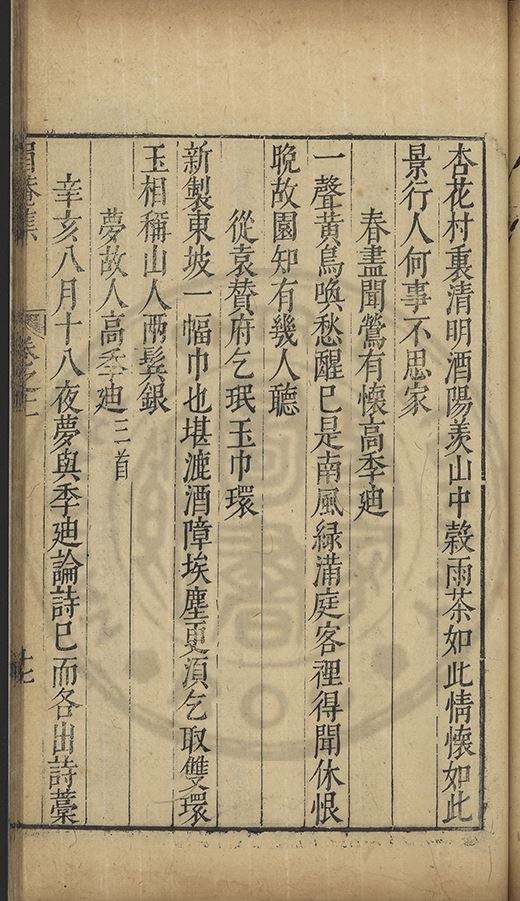 杏花村裏清明酒陽羡山中榖雨茶如此情懷如此
景行人何事不思家
春盡聞鶯有懷高季廸
一聲黃鳥喚愁醒已是南風緑滿庭客裡得聞休恨
晩故園知有幾人聽
從袁賛府乞珉玉巾環
新製東坡一幅巾也堪漉酒障埃塵更湏乞取雙環
玉相稱山人兩鬂銀
夢故人高季廸三首
辛亥八月十八夜夢與季廸論詩已而各出詩藁
眉菴集